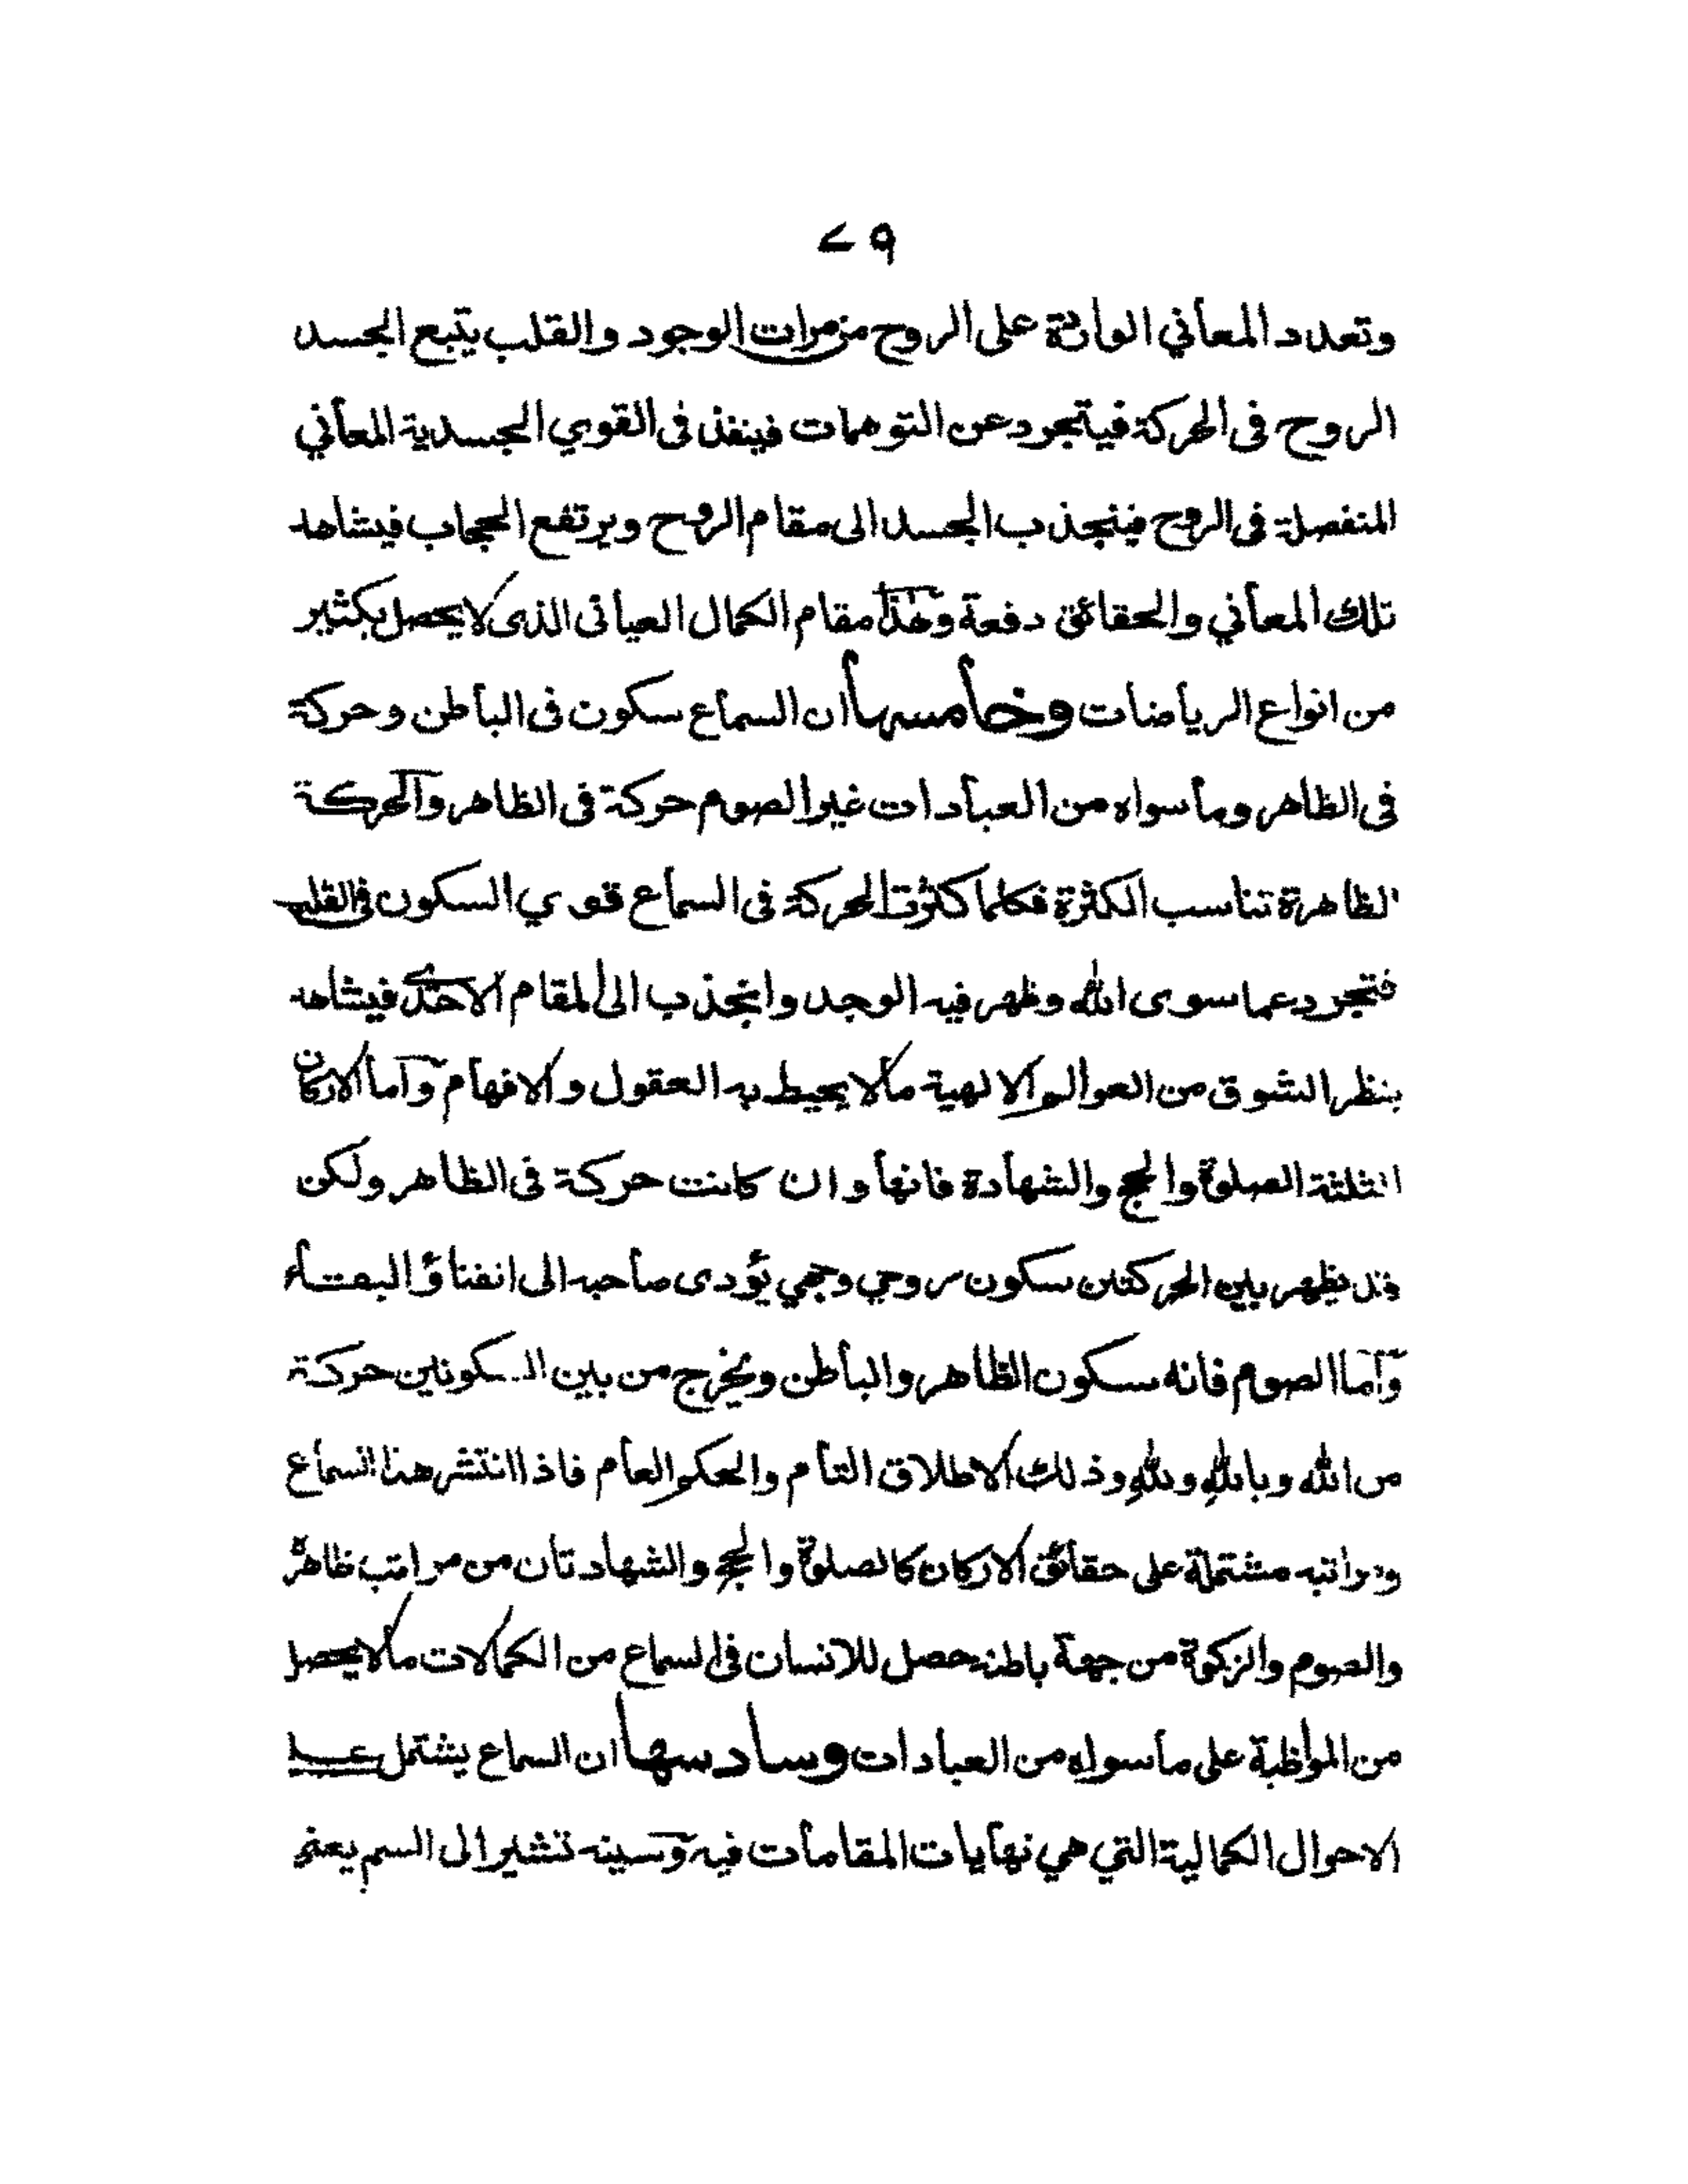 ٩ ٧
وتعدد المعاني على الروح من مرات الوجود والقلب يتبع الجسد
الروح فى الحركة فيتجرد عن التوهمات فينفذ فى القوي الجسدية المعاني
المنفصلة فى الروح فينجذب الجسد الى مقام الروح ويرتفع الحجاب فيشاهد
تلك المعاني والحقائق دفعة وهذا مقام الكمال العيانى الذى لا يحصل بكثير
من انواع الرياضات وخامسها ان السماع سكون فى الباطن وحركة
فى الظاهر وما سواه من العبادات غير الصوم حركة فى الظاهر والحركة
الظاهرة تناسب الكثرة فكلما كثرت الحركة فى السماع قوي السكون فى القلب
فتجرد عما سوى الله وظهر فيه الوجد وانجذب الى المقام الاحدى فيشاهد
بنظر الشوق من العوالم الالهية مالا يحيط به العقول والافهام واما الاركان
الثلثة الصلوة والحج والشهادة فانها وان كانت حركة فى الظاهر ولكن
قد يظهر بين الحركتين سكون روحي وجمي يؤدى صاحبه الى الفناؤ البقاء
واما الصوم فانه سكون الظاهر والباطن ويخرج من بين السكونين حركة
من الله وبالله ولله وذلك الاطلاق التام والحكم العام فاذا انتشر هذا السماع
ومراتبه مشتملة على حقائق الاركان كالصلوة والحج والشهادتان من مراتب ظاهرة
والصوم والزكوة من جهة باطنه حصل للانسان فى السماع من الكمالات مالا يحصل
من المواظبة على ما سواه من العبادات وسادسها ان السماع يشتمل على
الاحوال الكمالية التي هي نهايات المقامات فيه وسينه تشير الى السم يعنى